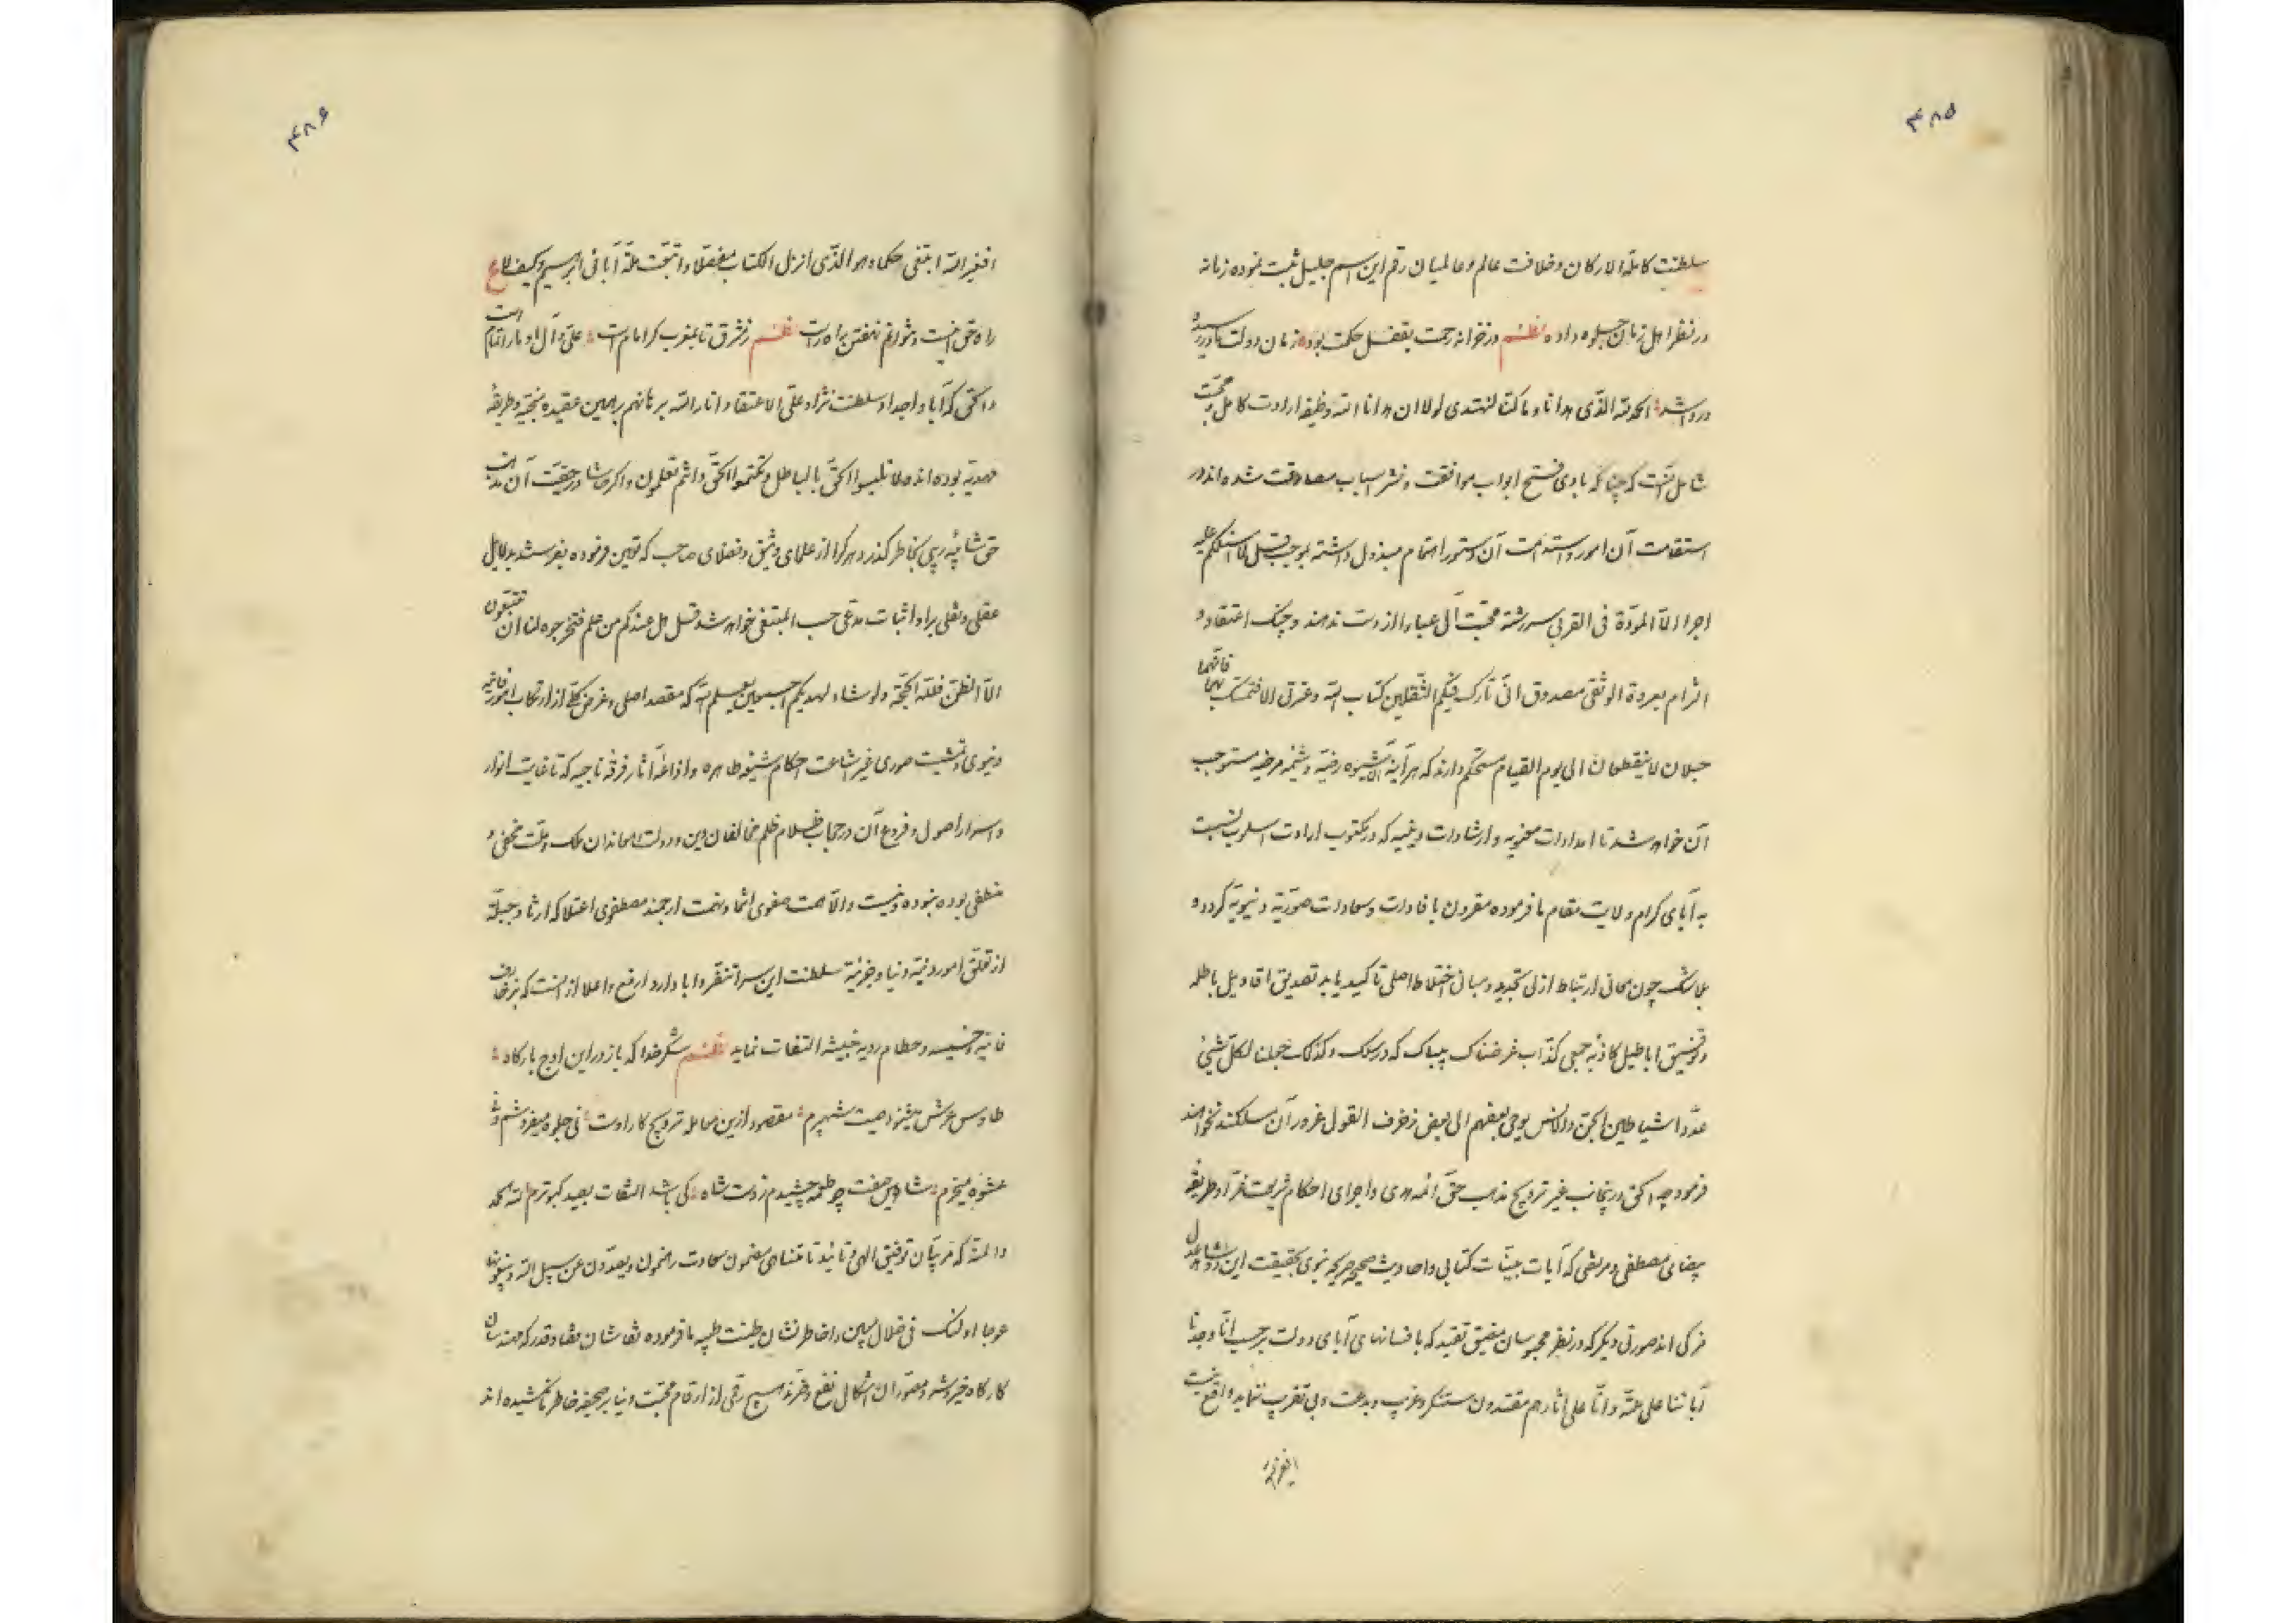 ۴۸۵
سلطنت کاملة الارکان و خلافت عالم و عالمیان رقم این اسم جلیل ثبت نموده زمانه
در نظر اهل زمان جلوه داده نظم در خزانه رحمت بقفل حکمت بود زمان دولت ما در رسید
در وا شد الحمد لله الذی هدانا و ما کنا لنهتدی لولا ان هدانا الله وظیفه ارادت کامل و محبت
شامل آنست که چنانکه بادی فتح ابواب موافقت و نشر اسباب مصادقت شده‌اند در
استقامت آن امور و استدامت آن دستور اهتمام مبذول داشته بموجب قل لا اسئلکم علیه
اجرا الا المودة فی القربی سررشته محبت آل عبا را از دست ندهند و چنک اعتقاد و
التزام بعروة الوثقی مصدوق انی تارک فیکم الثقلین کتاب الله و عترتی الا فتمسک بهما فانهما
حبلان لا ینقطعان الی یوم القیام مستحکم دارند که هرآینه این شیوه رضیه و شیمه مرضیه مستوجب
آن خواهد شد تا امدادات معنویه و ارشادات دینیه که در مکتوب ارادت اسلوب نسبت
به آبای کرام ولایت مقام ما فرموده مقرون بافادات و سعادات صوریه دنیویه گردد و
بلاشک چون معانی ارتباط ازلی بتجدید مبانی اختلاط اصلی تاکید یابد تصدیق اقاویل باطله
و توفیق اباطیل کاذبه جمعی کذاب غرضناک بیباک که در سلک و کذلک جعلنا لکل شیئ
عدوا شیاطین الجن والانس یوحی بعضهم الی بعض زخرف القول غرورا آن مسلکند نخواهند
فرمود چه الحق در اینجانب غیر ترویج مذهب حق ائمه هدی و اجرای احکام شریعت غرا و طریقه
بیضای مصطفی و مرتضی که آیات بینات کتابی و احادیث صحیحه صریحه نبوی بحقیقت این دو شاهد عدل
مزکی اند صورتی دیگر که در نظر محبوسان مضیق تقید که بافسانهای آبای دولت بر حسب انا وجدنا
آبائنا علی امة و انا علی آثارهم مقتدون مستنکر و غریب و بدعت و بی تقریب نماید واقع نیست
افغیر الله
۴۸۶
افغیر الله ابتغی حکما و هو الذی انزل الکتاب مفصلا و اتبعت ملة آبائی ابراهیم و کیف لا ع
راه حق اینست و نتوانم نهفتن راه راست نظم ز شرق تا بمغرب کر امام است علی و آل او ما را تمام است
و الحق که آبا و اجداد سلطنت نژاد علی الاعتقاد انار الله برهانهم بر همین عقیده منجیه و طریقه
مهدیه بوده‌اند ولا تلبسوا الحق بالباطل و تکتموا الحق و انتم تعلمون و اکر حاشا در حقیقت آن مذهب
حق شائبه ریبی بخاطر گذرد هر کرا از علمای وثیق و فضلای صاحب که تعیین فرموده بفرستند بدلایل
عقلی و نقلی براو اثبات مدعی حسب المبتغی خواهد شد قل هل عندکم من علم فتخرجوه لنا ان تتبعون
الا الظن فلله الحجة و لو شاء لهدیکم اجمعین یعلم الله که مقصد اصلی و غرض کلی از ارتکاب امور فانیه
دنیوی و تمشیت صوری غیر اشاعت احکام شیعه طاهره و اذاعه آثار فرقه ناجیه که تا غایت انوار
و اسرار اصول و فروع آن در حجاب ظلام ظلم مخالفان دین و دولت و معاندان ملک و ملت مخفی و
منطفی بوده نبوده و نیست و الا همت صفوی انتما و نهمت ارجمند مصطفوی اعتلا که ارثا و جبلة
از تعلق امور دنیه دنیا و جزئیه سلطنت این سرا تنفر و ابا دارد ارفع و اعلا از آنست که بزخارف
فانیه خسیسه و حطام ردیه خبیثه التفات نماید نظم شکر خدا که باز در این اوج بارگاه
طاوس عرش میشنود صیت شهپرم مقصود ازین معامله ترویج کار اوست نی جلوه میفروشم و نی
عشوه میخرم شاهین صفت چو طعمه چشیدم ز دست شاه کی باشد التفات بصید کبوترم لله الحمد
و المنة که مربیان توفیق الهی و تائید نامتناهی مضمون سعادت رهنمون و یصدون عن سبیل الله و یبغونها
عوجا اولئک فی ضلال مبین را خاطرنشان طینت طیبه ما فرموده نقاشان قضا و قدر که مهندسان
کارگاه خیر و شر و مصوران اشکال نفع و ضررند هیچ رقمی از ارقام محبت دنیا بر صحیفه خاطر نکشیده‌اند